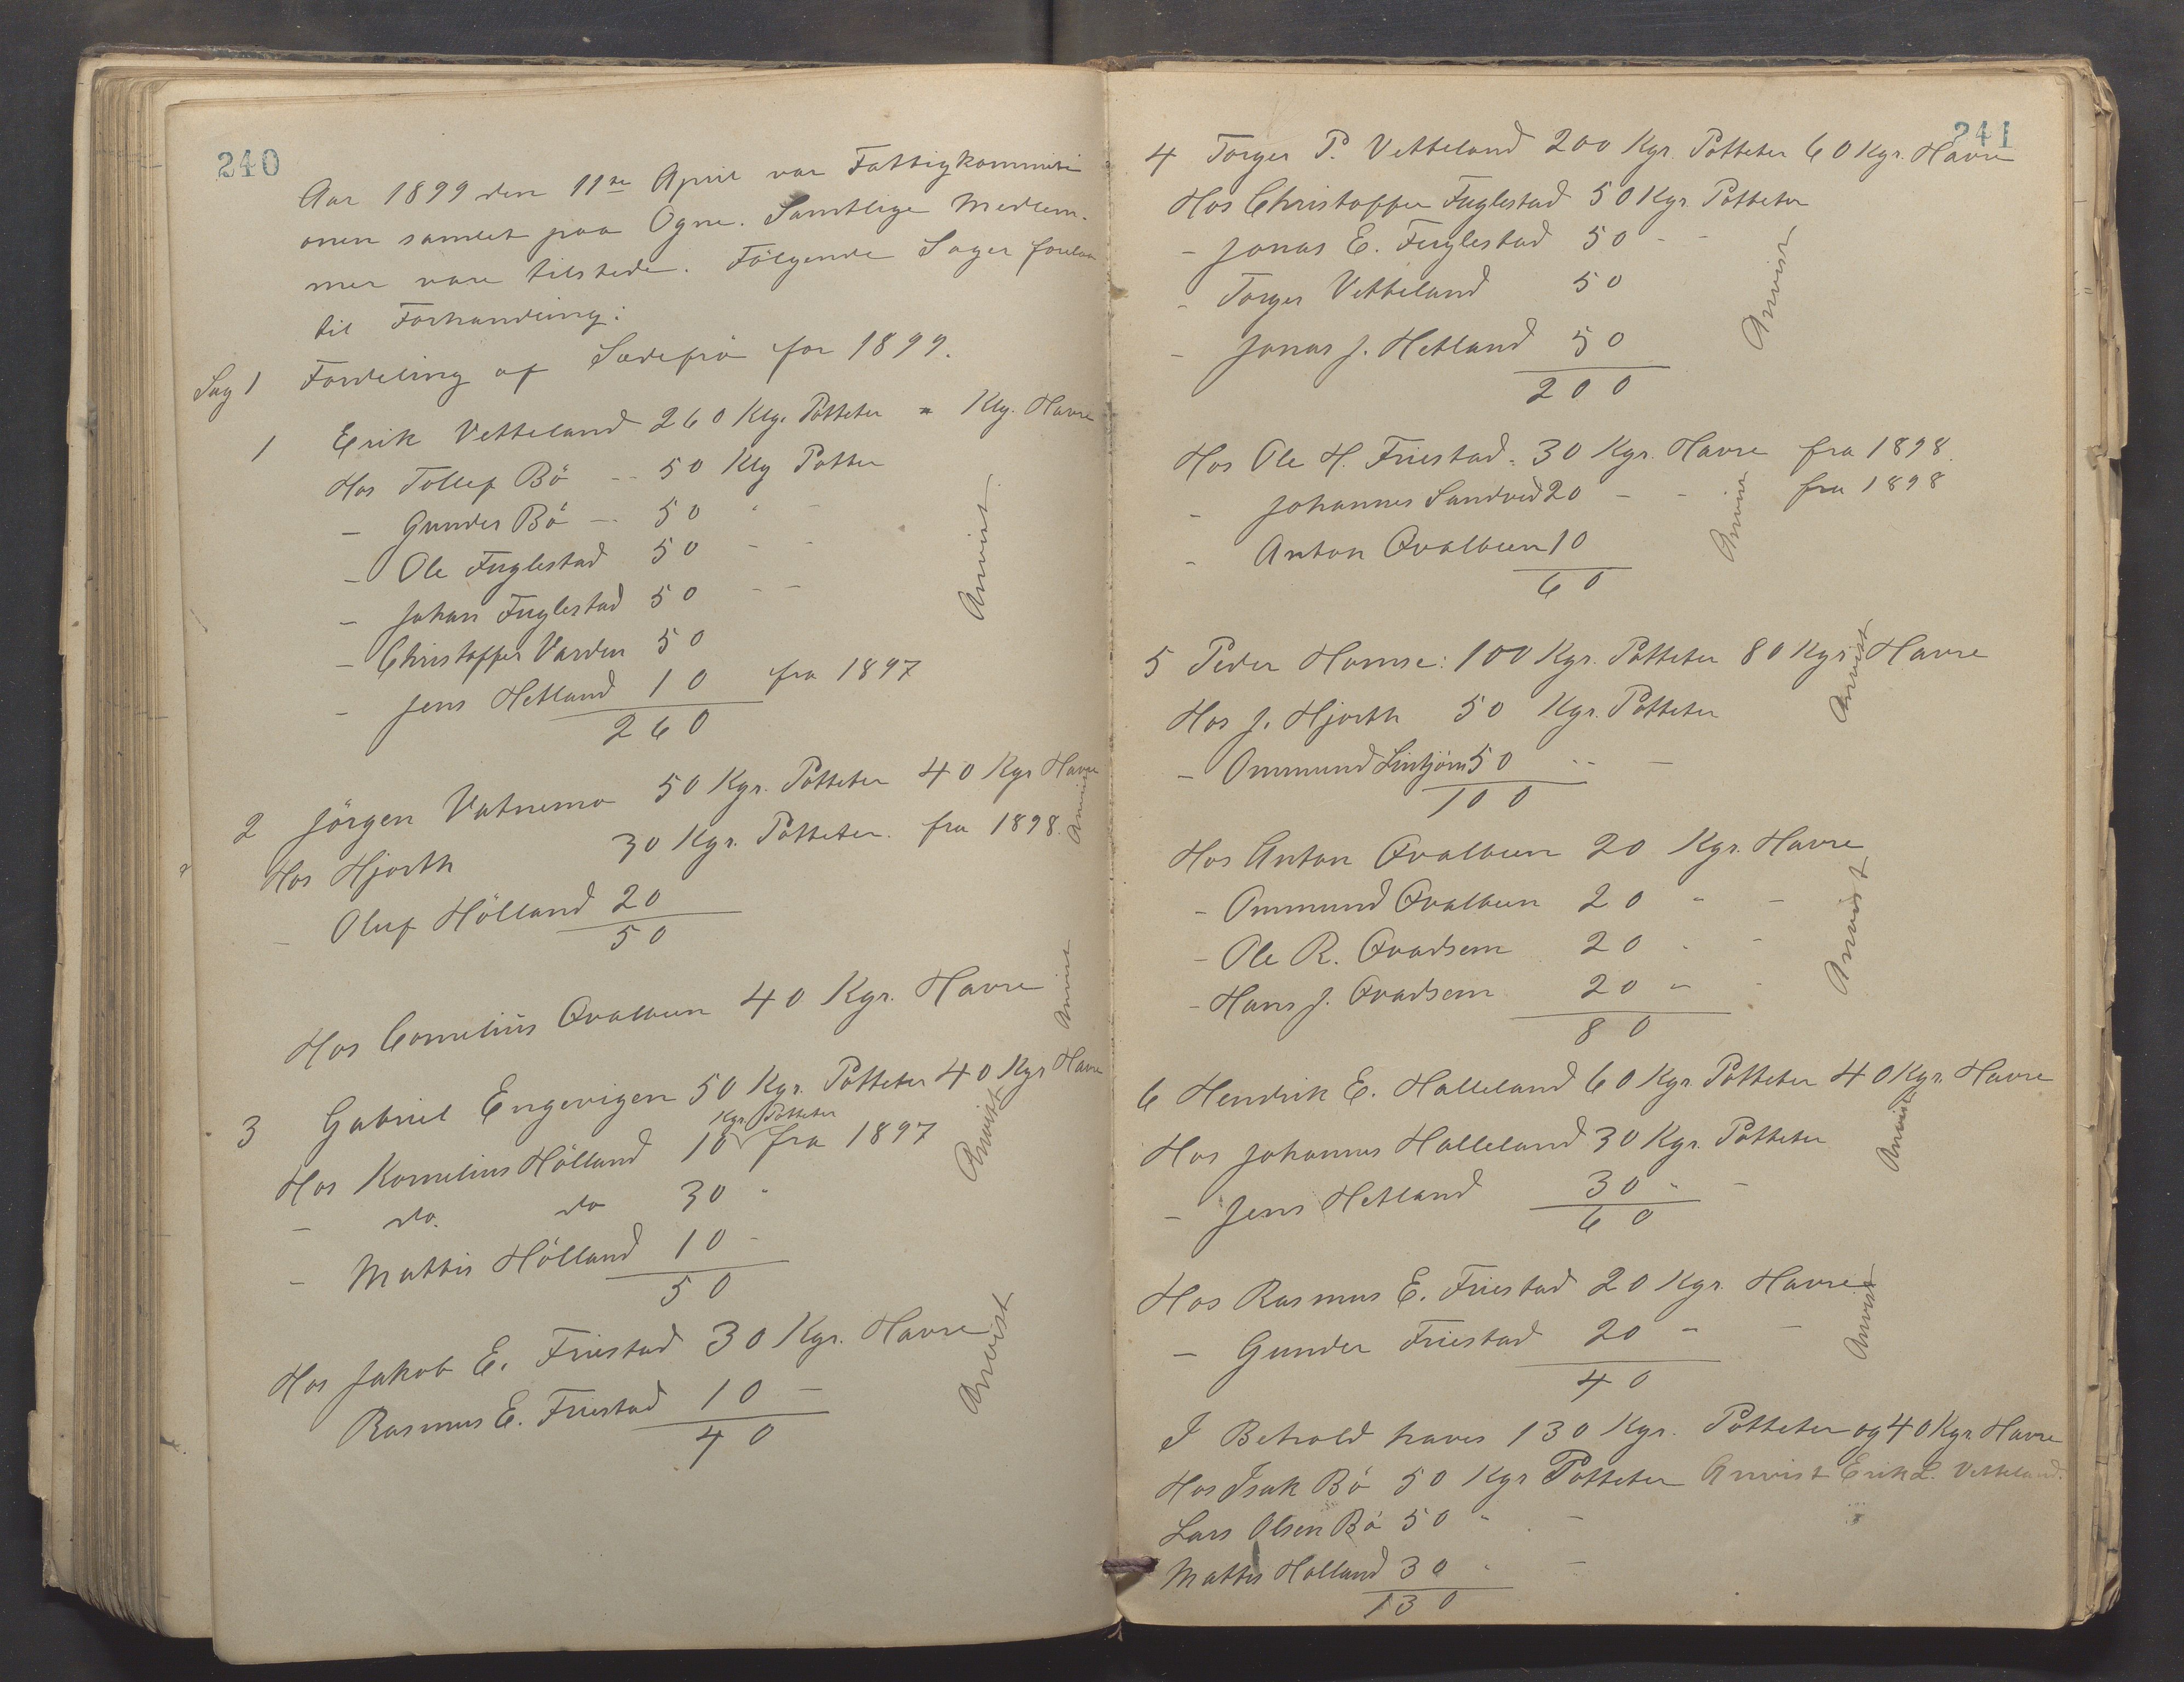 240
Aar 1899 den 11te April var Fattigkommisi
onen samlet paa Ogne. Samtlige Medlem-
mer vare tilstede. Følgende Sager forelaa
til Forhandling:
Sag 1 Fordeling af Sædefrö for 1899.
1 Erik Vetteland 260 Klg. Potteter " Klg. Havre
Hos Tollef Bö -- 50 Klg Potter
- Gunder Bö -- 50 " -
- Ole Fuglestad 50 - -
- Johan Fuglestad 50 - -
- Christoffer Varden 50
- Jens Hetland 10 fra 1897
260
Anvist
2 Jörgen Vatnemo 50 Kgr. Potteter 40 Kgr Havre
Hos Hjorth 30 Kgr. Potteter. fra 1898.
- Oluf Hölland 20
50
Anvist
Hos Cornelius Qvalbein 40 Kgr. Havre
Anvist
3 Gabriel Engevigen 50 Kgr. Potteter 40 Kgr Havre
Kgr. Potteter
Hos Kornelius Hölland 10 fra 1897
- do. do 30 "
- Mattis Hölland 10 -
50
Anvist
Hos Jakob E. Friestad 30 Kgr. Havre
Rasmus E. Friestad 10 -
40
Anvist
241
4 Torger P. Vetteland 200 Kgr. Potteter 60 Kgr. Havre
Hos Christoffer Fuglestad 50 Kgr. Potteter
- Jonas E. Fuglestad 50 - -
- Torger Vetteland 50
- Jonas J. Hetland 50
200
Anvist
Hos Ole H. Friestad: 30 Kgr. Havre fra 1898.
- Johannes Sandved 20 - - fra 1898
- Anton Qvalbein 10
60
Anvist
5 Peder Homse: 100 Kgr. Potteter 80 Kgr. Havre
Hos J. Hjorth 50 Kgr. Potteter
- Ommund Lintjörn 50 -- -
100
Anvist
Hos Anton Qvalbein 20 Kgr. Havre
- Ommund Qvalbein 20 " -
- Ole R. Qvadsem 20 " -
- Hans J. Qvadsem 20 " -
80
Anvist
6 Hendrik E. Halleland 60 Kgr. Potteter 40 Kgr. Havre
Hos Johannes Halleland 30 Kgr. Potteter
- Jens Hetland 30 " -
60
Anvist
Hos Rasmus E. Friestad 20 Kgr. Havre
- Gunder Friestad 20 - -
40
Anvist
I Behold haves 130 Kgr. Potteter og 40 Kgr. Havre
Hos Isak Bö 50 Kgr Potteter Anvist Erik L. Vetteland.
Lars Olsen Bö 50 " -
Mattis Holland 30 " -
130